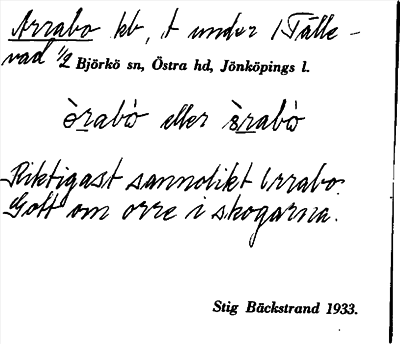 Arrabo kb, t under 1 Tälle-
vad 1/2 Björkö sn, Östra hd, Jönköpings l.
òrabò eller òrabò
Riktigast sannolikt Orrabo.
Gott om orre i skogarna.
Stig Bäckstrand 1933.